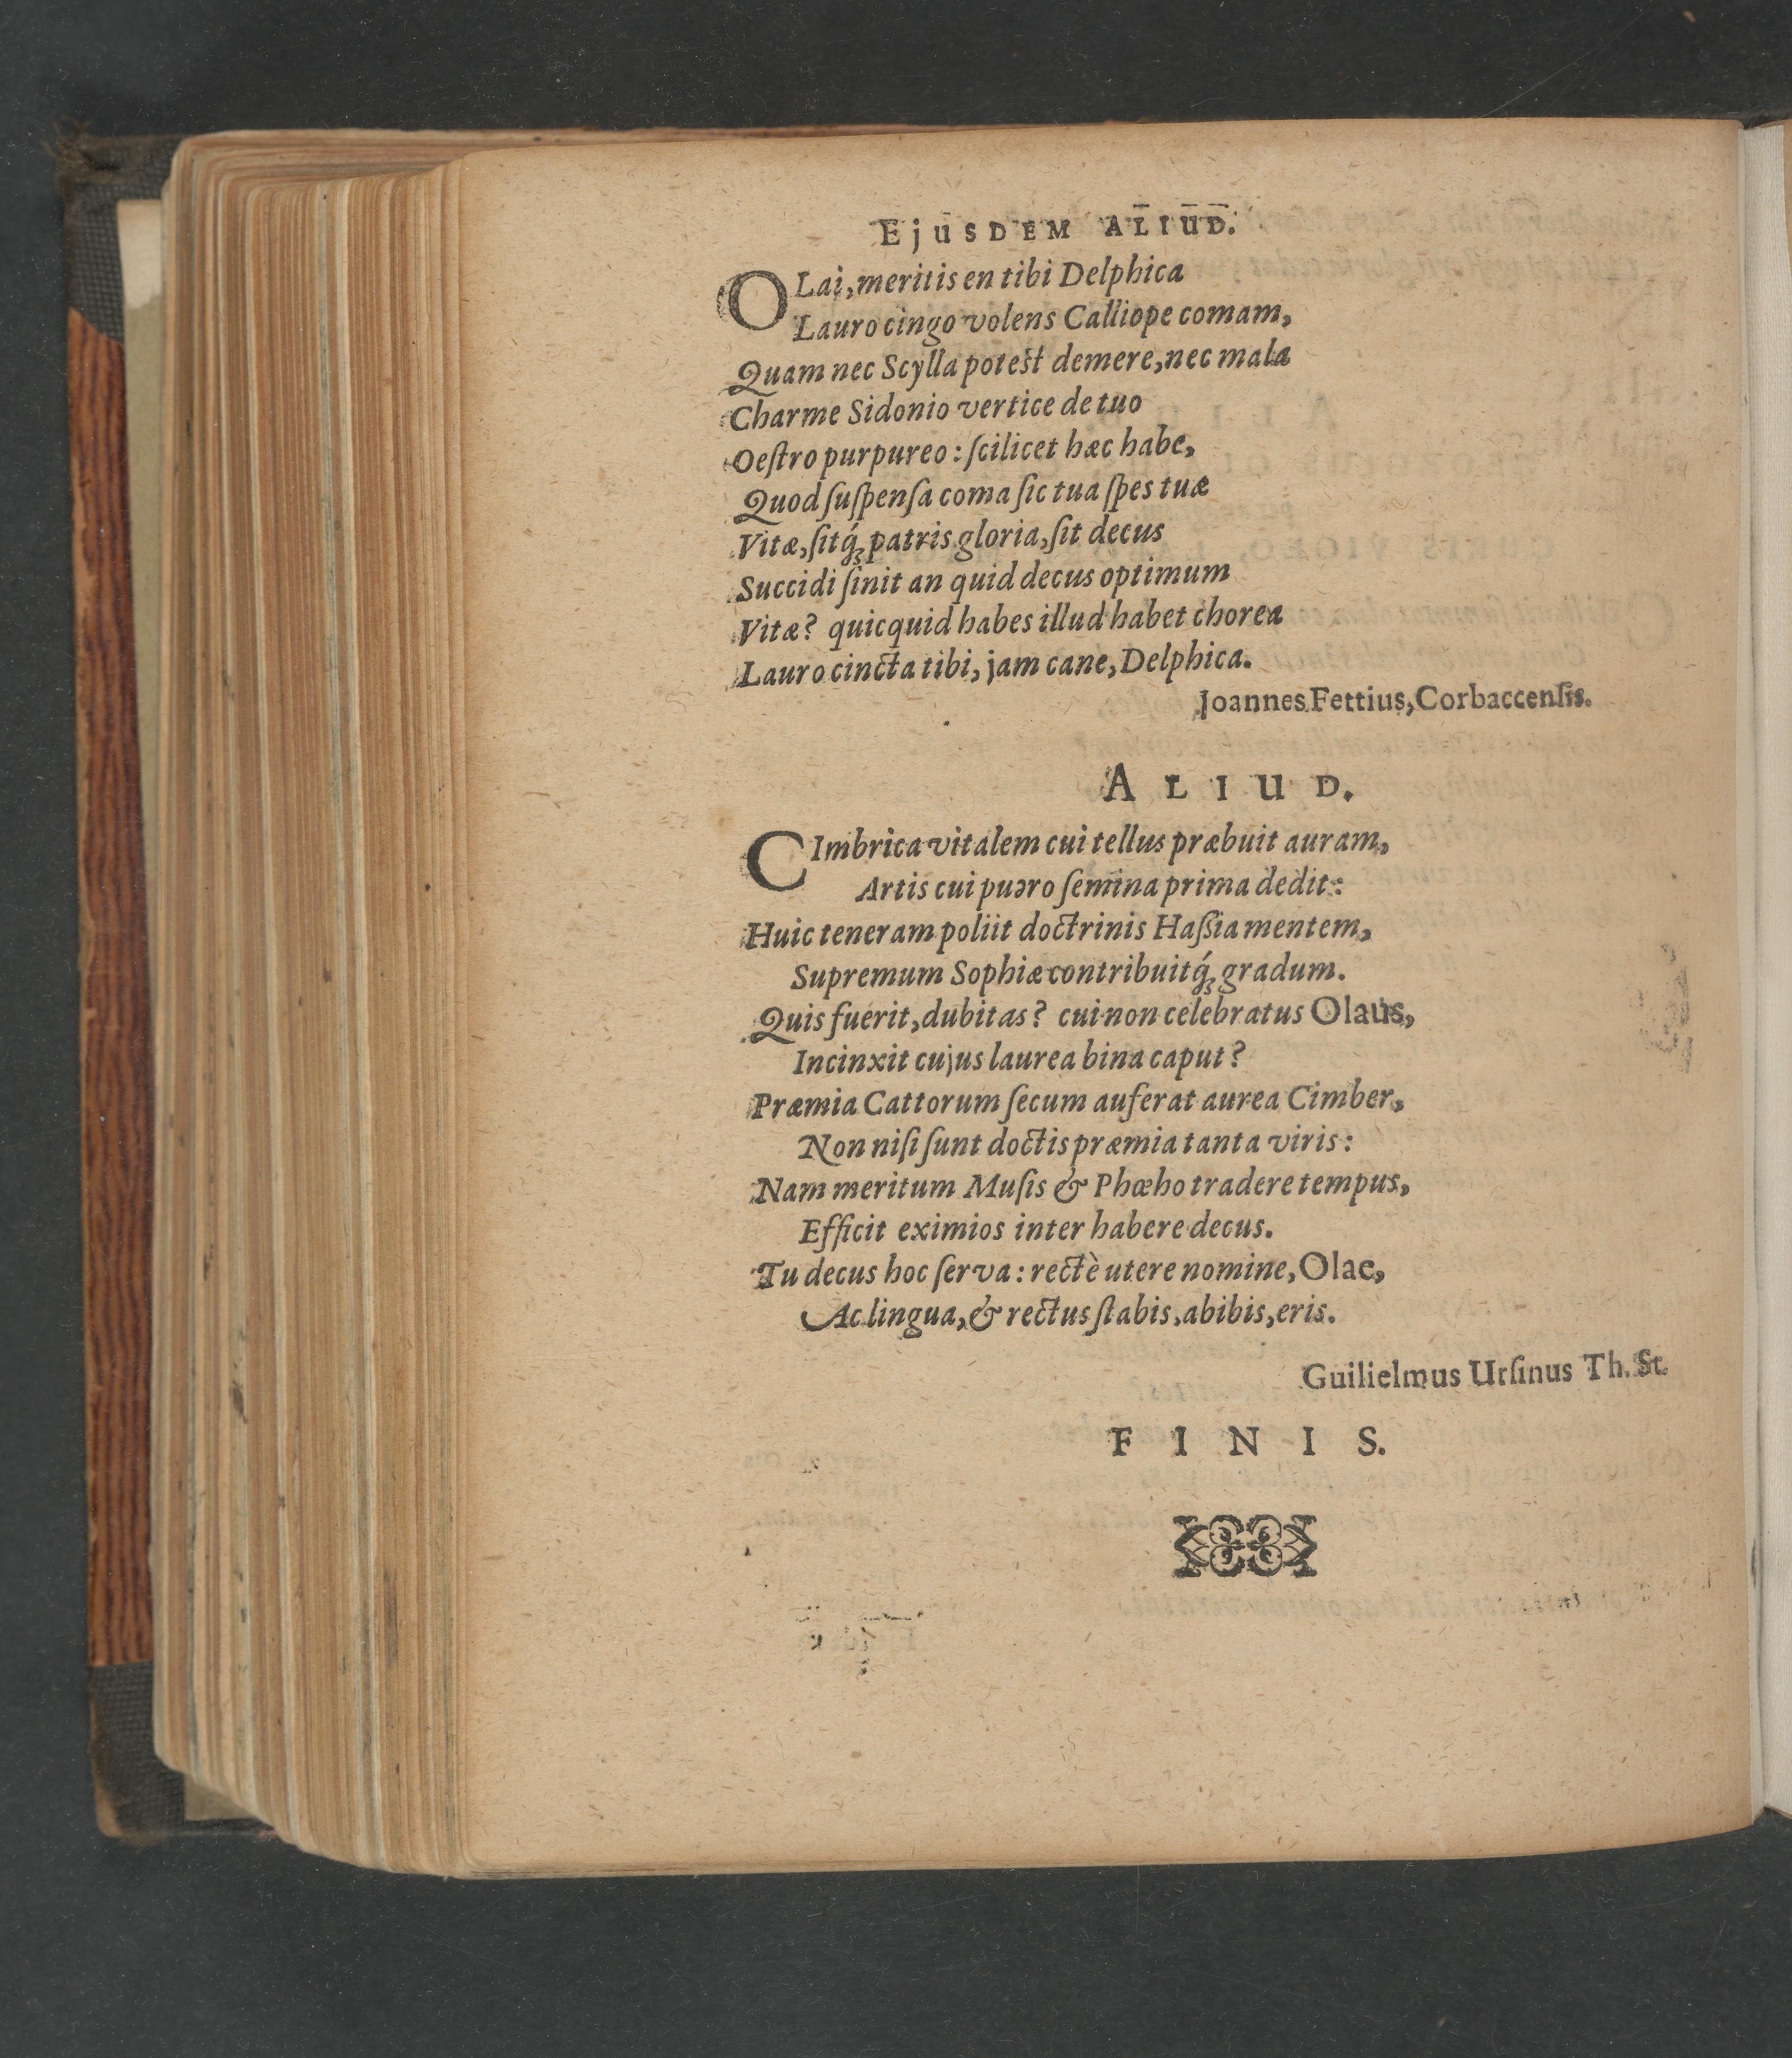 EjusDEM ALIUD.
OLai, meritis en tibi Delphica
Lauro cingo volens Calliope comam,
Quam nec Scylla potest demere, nec mala
Charme Sidonio vertice de tuo
Oeſtro purpureo: ſcilicet hæc habe,
Quod ſuſpenſa coma ſic tua ſpes tuæ
Vitæ, ſitq́ꝫ patris gloria, ſit decus
Succidi ſinit an quid decus optimum
Vitæ? quicquid habes illud habet chorea
Lauro cincta tibi, jam cane, Delphica.
Joannes Fettius, Corbaccenſis.
ALIUD.
CImbrica vitalem cui tellus præbuit auram,
Artis cui puero ſemina prima dedit:
Huic teneram poliit doctrinis Haſſia mentem,
Supremum Sophiæ contribuitq́ꝫ gradum.
Quis fuerit, dubitas? cui non celebratus Olaus,
Incinxit cujus laurea bina caput?
Præmia Cattorum ſecum auferat aurea Cimber,
Non niſi ſunt doctis præmia tanta viris:
Nam meritum Muſis & Phœho tradere tempus,
Efficit eximios inter habere decus.
Tu decus hoc ſerva: rectè utere nomine, Olae,
Ac lingua, & rectus ſtabis, abibis, eris.
Guilielmus Urſinus Th. St.
FINIS.